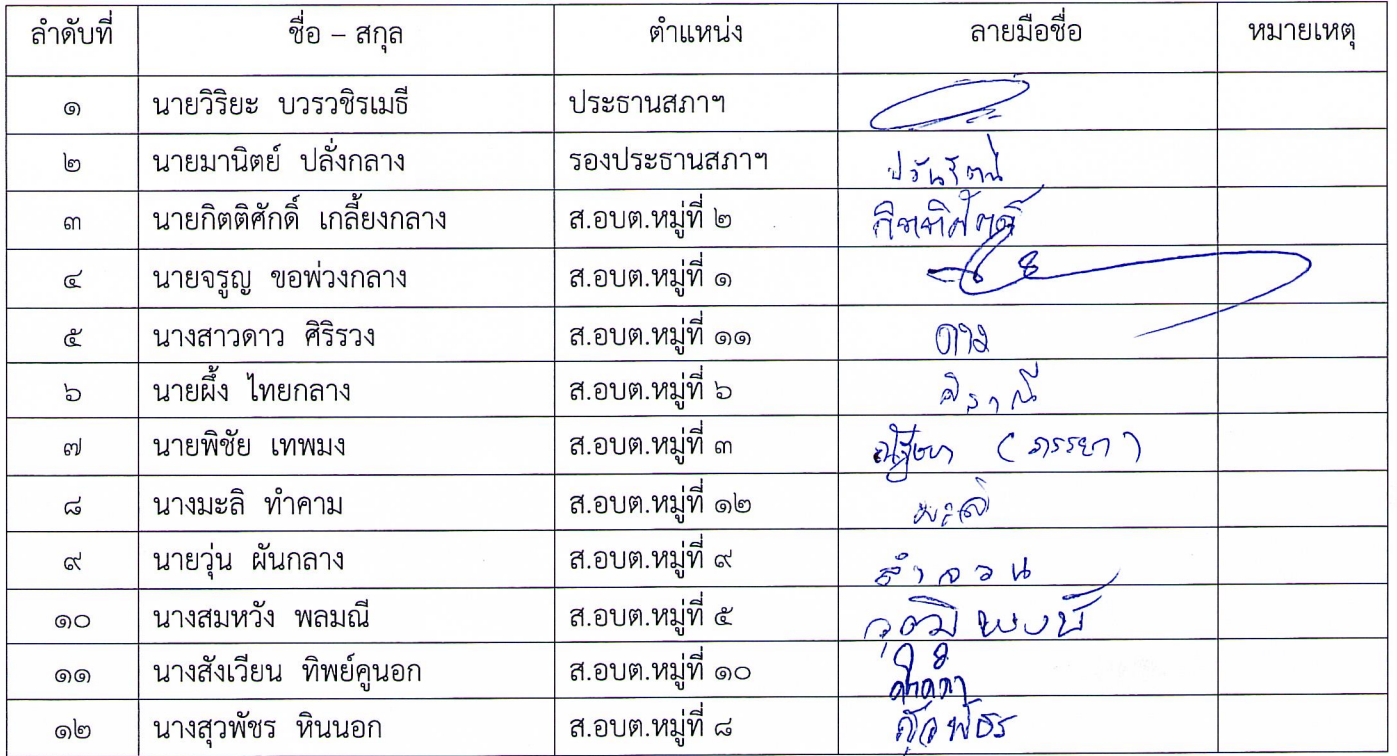 ลำดับที่ ชื่อ – สกุล ตำแหน่ง ลายมือชื่อ หมายเหตุ
๑ นายวิริยะ บวรวชิรเมธี ประธานสภาฯ
๒ นายมานิตย์ ปลั่งกลาง รองประธานสภาฯ
๓ นายกิตติศักดิ์ เกลี้ยงกลาง ส.อบต.หมู่ที่ ๒ กิตติศักดิ์
๔ นายจรูญ ขอพ่วงกลาง ส.อบต.หมู่ที่ ๑
๕ นางสาวดาว ศิริรวง ส.อบต.หมู่ที่ ๑๑ ดาว
๖ นายผึ้ง ไทยกลาง ส.อบต.หมู่ที่ ๖
๗ นายพิชัย เทพมง ส.อบต.หมู่ที่ ๓ (ภรรยา)
๘ นางมะลิ ทำคาม ส.อบต.หมู่ที่ ๑๒ มะลิ
๙ นายวุ่น ผันกลาง ส.อบต.หมู่ที่ ๙
๑๐ นางสมหวัง พลมณี ส.อบต.หมู่ที่ ๕
๑๑ นางสังเวียน ทิพย์คูนอก ส.อบต.หมู่ที่ ๑๐
๑๒ นางสุวพัชร หินนอก ส.อบต.หมู่ที่ ๘